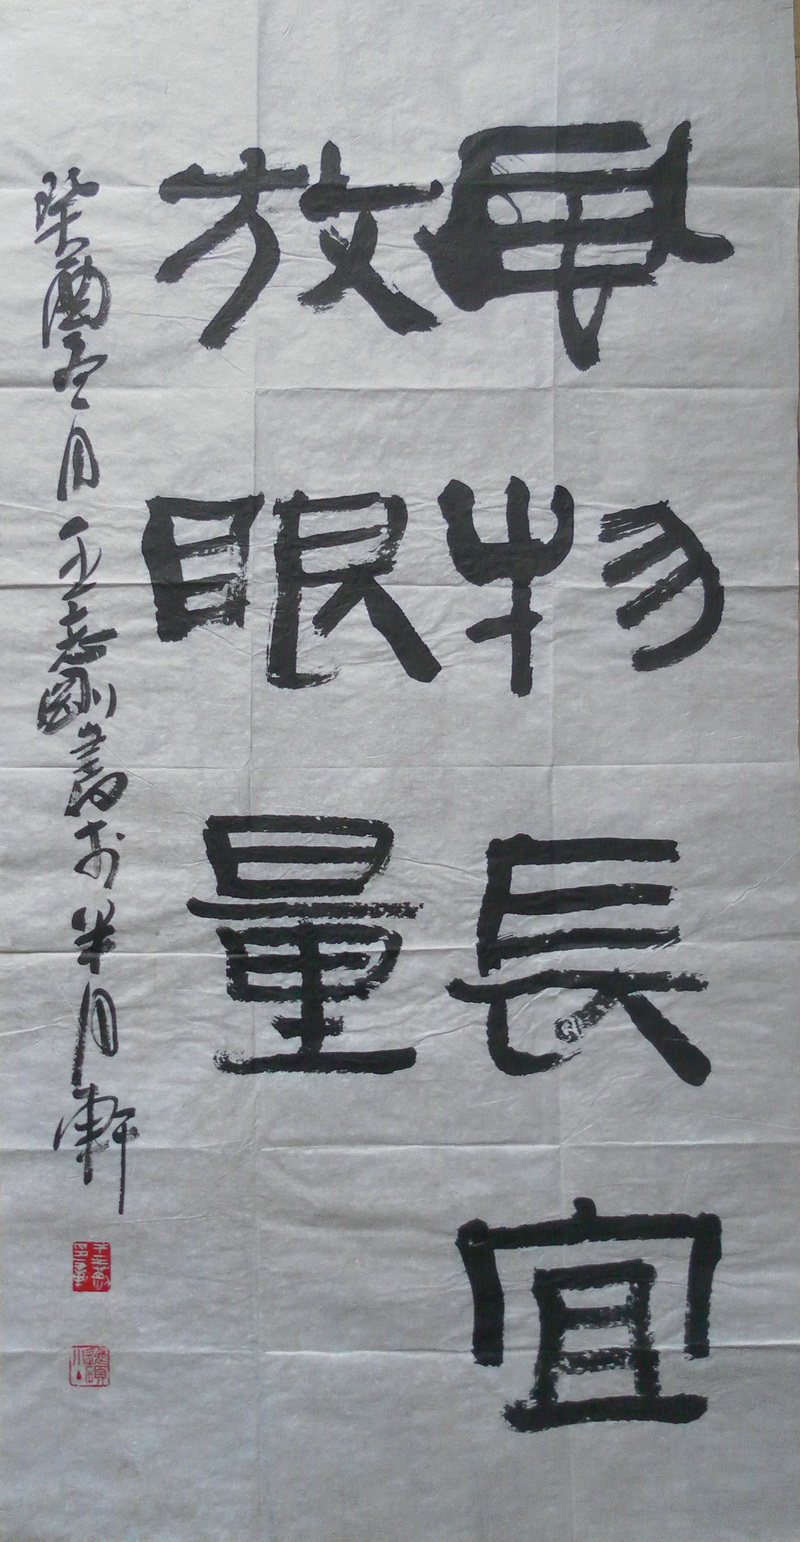 風物長宜
放眼量
癸酉月王志剛書於半月軒